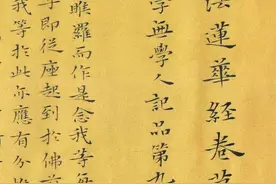 法蓮華經卷第
學無學人記品第九
睺羅而作是念我等每
即從座起到於佛前
我等於此亦應有分